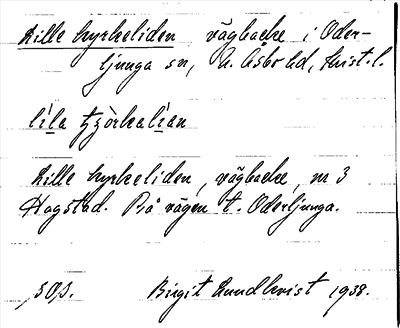 Lille kyrkeliden, vägbacke i Oder-
ljunga sn, N. Åsbo hd, Krist. l.
lila tjyrkalian
Lille kyrkeliden, vägbacke, nr 3
Hagstad. På vägen t. Oderljunga.
Birgit Lundkvist 1938.